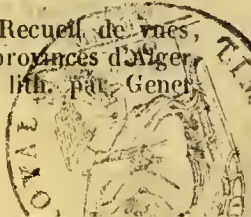 Recueil de vues,
provinces d'Alger,
lith. par Genet
OYAL
TI